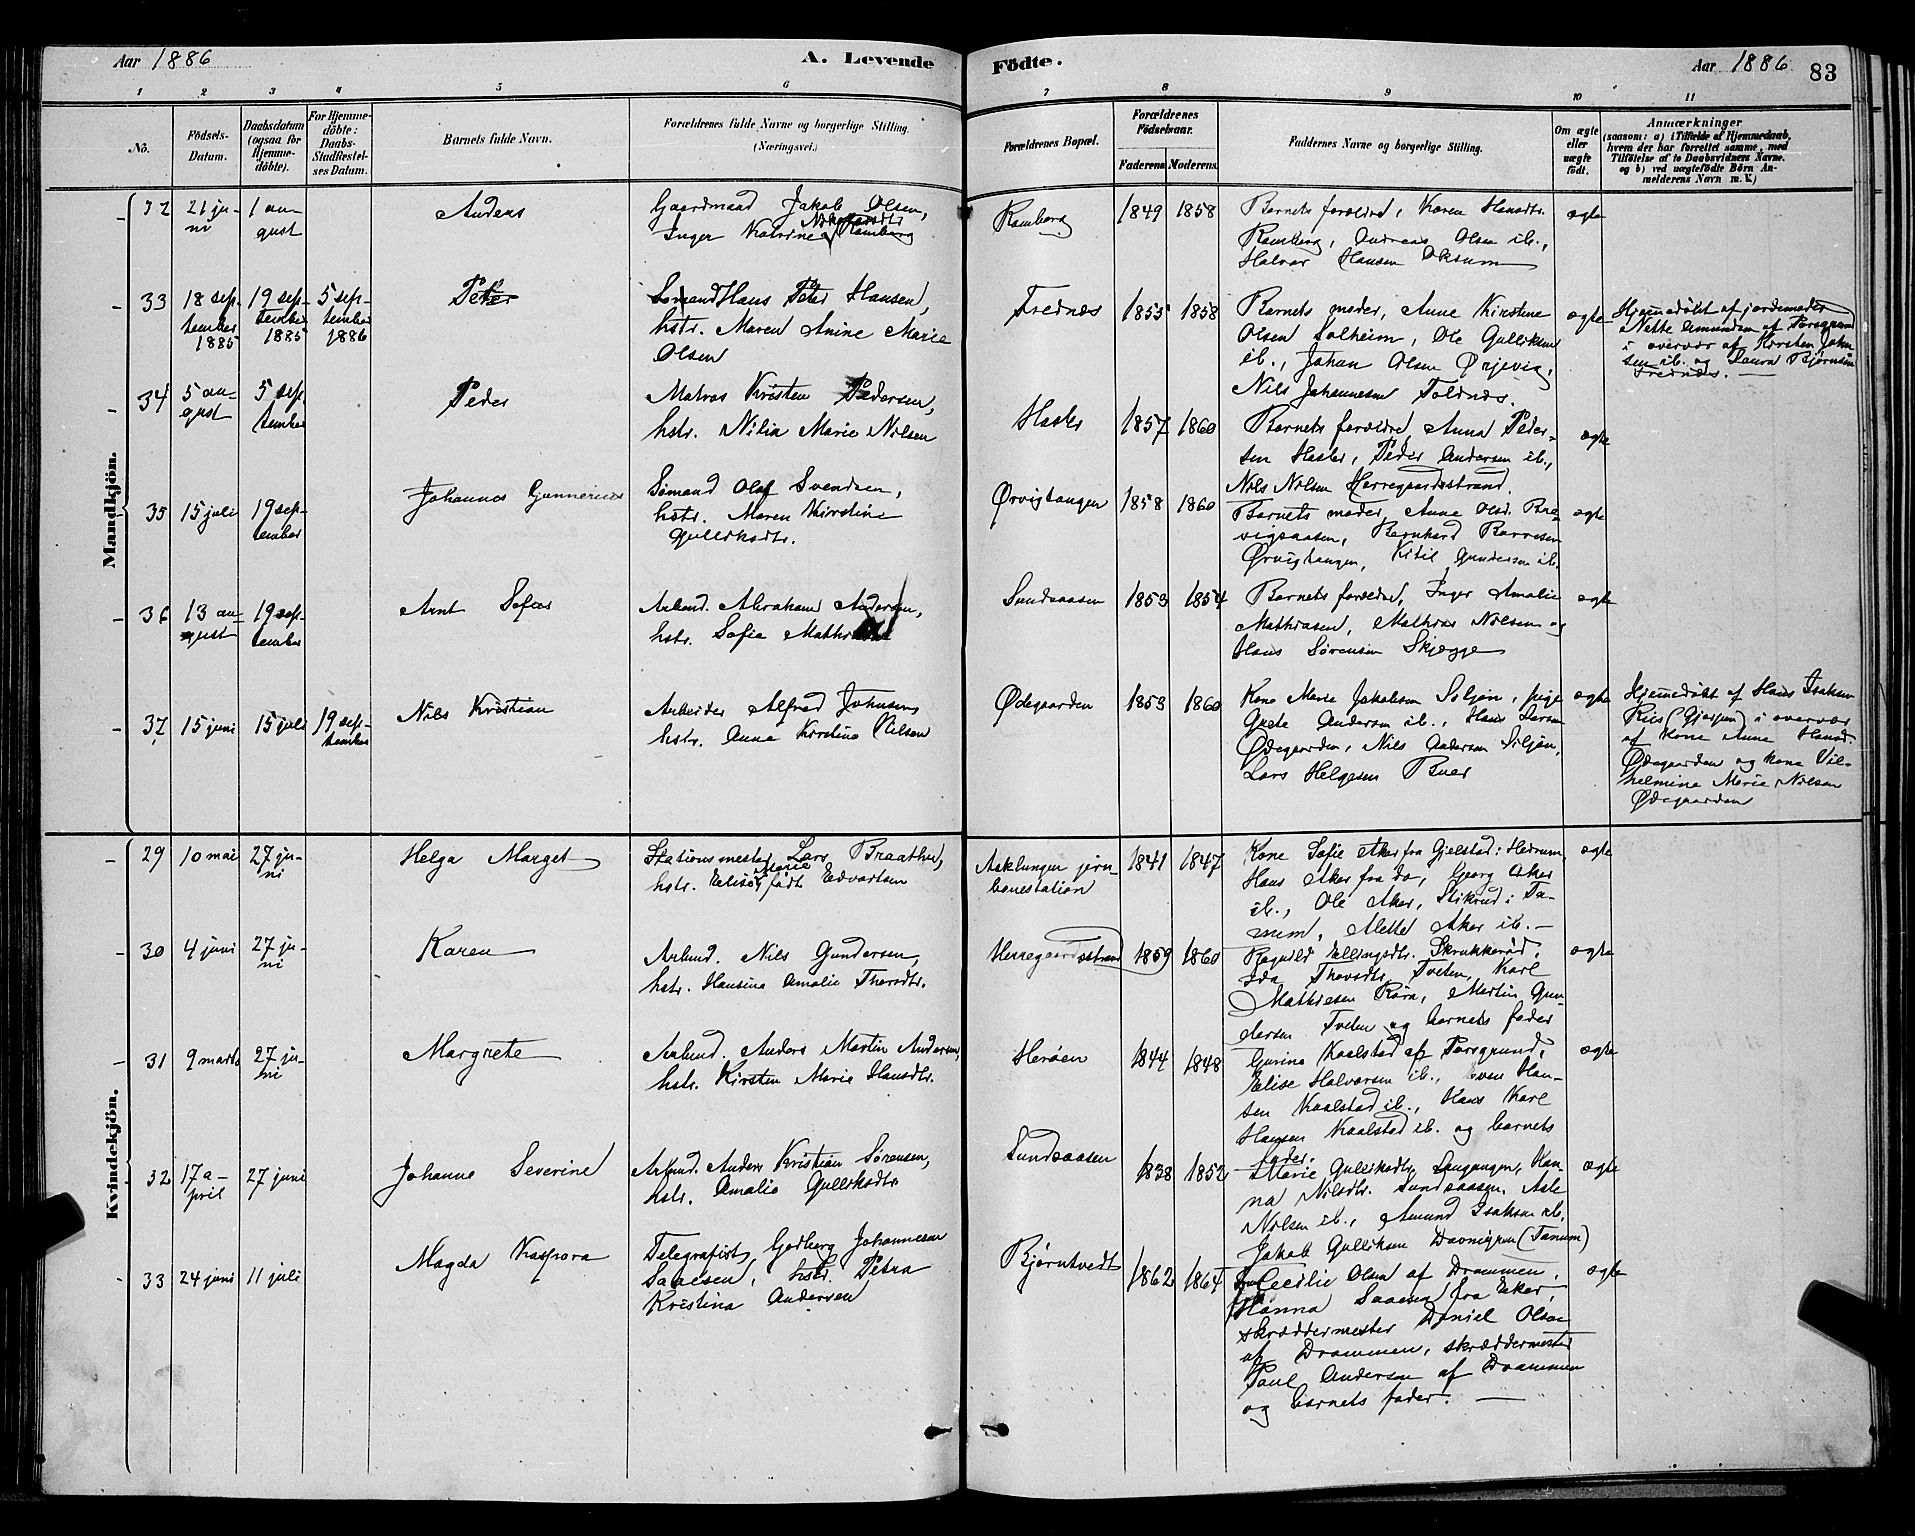 Aar 1886
A. Levende
Födte.
Aar 1886
83
1 2 3 4 5 6 7 8 9 10 11
No.
Födsels-Datum.
Daabsdatum (ogsaa for Hjemme-döbte).
For Hjemme-döbte: Daabs-Stadfæstel-ses Datum.
Barnets fulde Navn.
Forældrenes fulde Navne og borgerlige Stilling.
(Næringsvei.)
Forældrenes Bopæl.
Forældrenes Födselsaar.
Faderens Moderens
Faddernes Navne og borgerlige Stilling.
Om ægte eller uægte födt.
Anmærkninger
(saasom: a) i Tilfælde af Hjemmedaab,
hvem der har forrettet samme, med
Tilföielse af to Daabsvidners Navne.
og b) ved uægtefödte Börn An-
melderens Navn m. V.)
Mandkjön.
32 21 ju-
ni
1 au-
gust
Anders
Gaardmand Jakob Olsen,
Inger Katrine Ramberg
Ramberg
1849 1858
Barnets forældre, Karen Hansdtr.
Ramberg, Andreas Olsen ib.,
Halvor Hansen Oksum
ægte
33 18 sep-
tember
1885
19 sep-
tember
1885
5 sep-
tember
1886
Peter
Sømand Hans Peter Hansen,
hstr. Maren Anine Marie
Olsen
Frednes
1855 1858
Barnets moder, Anne Kirstine
Olsen Solheim, Ole Gulliksen
ib., Johan Olsen Ørjevig,
Nils Johannesen Foldnes.
ægte
Hjemedøbt af jordemoder
Nette Amundsen af Porsgrund
i overvær af Kirsten John-
sen ib. og Laura Bjørnsen
Frednes.
34 5 au-
gust
5 sep
tember
Peder
Matros Kristen Pedersen,
hstr. Nilia Marie Nilsen
Hasler
1857 1860
Barnets forældre, Anna Peder-
sen Hasler, Peder Andersen ib.,
Nils Nilsen Herregaardsstrand.
ægte
35 15 juli
19 sep-
tember
Johannes Gunnerius
Sømand Olaf Svendsen,
hstr. Maren Kirstine
Gulliksdtr.
Ørvigtangen
1858 1860
Barnets moder, Anne Olsd. Bre-
vigsaasen, Bernhard Barresen
Ørvigtangen, Kitil Gundersen ib.
ægte
36 13 au-
gust
19 sep-
tember
Arnt Sofus
Arbmd. Abraham Andersen,
hstr. Sofie
Sundsaasen
1853 1854
Barnets forældre, Inger Amalie
Mathiasen, Mathias Nilsen og
Hans Sørensen Skjegge
ægte
37 15 juni
15 juli
19 sep-
tember
Nils Kristian
Arbeider Alfred Johnsen,
hstr. Anne Kirstine Nilsen
Ødegaarden
1853 1860
Kone Marie Jakobsen Siljan, pige
Grete Andersen ib., Hans Larsen
Ødegaarden, Nils Andersen Siljan,
Lars Helgesen Buer
ægte
Hjemedøbt af Hans Isaksen
Riis (Gjerpen) i overvær
af kone Anne Hansd.
Ødegaarden og kone Vil-
helmine Marie Nilsen
Ødegaarden
Kvindekjön.
29 10 mai
27 ju-
ni
Helga Marget
Stationsmester Lars Braathen,
hstr. Elise Marie født Edvartsen
Asklungen jern-
banestation
1841 1847
Kone Sofie Aker fra Gjelstad i Hedrum,
Hans Aker fra do, Georg Aker
ib., Ole Aker, Stikrud i Ta-
num, Alette Aker ib.
ægte
30 4 juni
27 ju-
ni
Karen
Arbmd. Nils Gundersen,
hstr. Hansine Amalie Thorsdtr.
Herregaardsstrand
1859 1860
Ragnild Ellingsdtr. Skrukkerød,
Ida Thorsdtr. Tveten, Karl
Mathiesen Røra, Martin Gun-
dersen Tveten og barnets fader
ægte
31 9 marts
27 ju-
ni
Margrete
Arbmd. Anders Martin Andersen,
hstr. Kirsten Marie Hansdtr.
Herøen
1844 1848
Gurine Kaalstad af Porsgrund,
Elise Halvorsen ib., Even Han-
sen Kaalstad ib., Hans Karl
Hansen Kaalstad ib. og barnets
fader.
ægte
32 17 a-
pril
27 juni
Johanne Severine
Arbmd. Anders Kristian Sørensen,
hstr. Amalie Gulliksdtr.
Sundsaasen
1838 1852
Marie Gulliksdtr. Langangen, Han-
na Nilsdtr. Sundsaasen, Asle
Nilsen ib., Amund Isaksen ib.,
Jakob Gulliksen (Tanum)
ægte
33 24 juni
11 juli
Magda Kaspara
Telegrafist Godberg Johannesen
Saaesen, hstr. Petra
Kristina Andersen
Bjørntvedt
1862 1864
Cecilie Olsen af Drammen,
Hanna Saaesen fra Eker,
skræddermester Daniel Olsen
af Drammen, skræddermester
Paul Andersen af Drammen
og barnets fader.
ægte